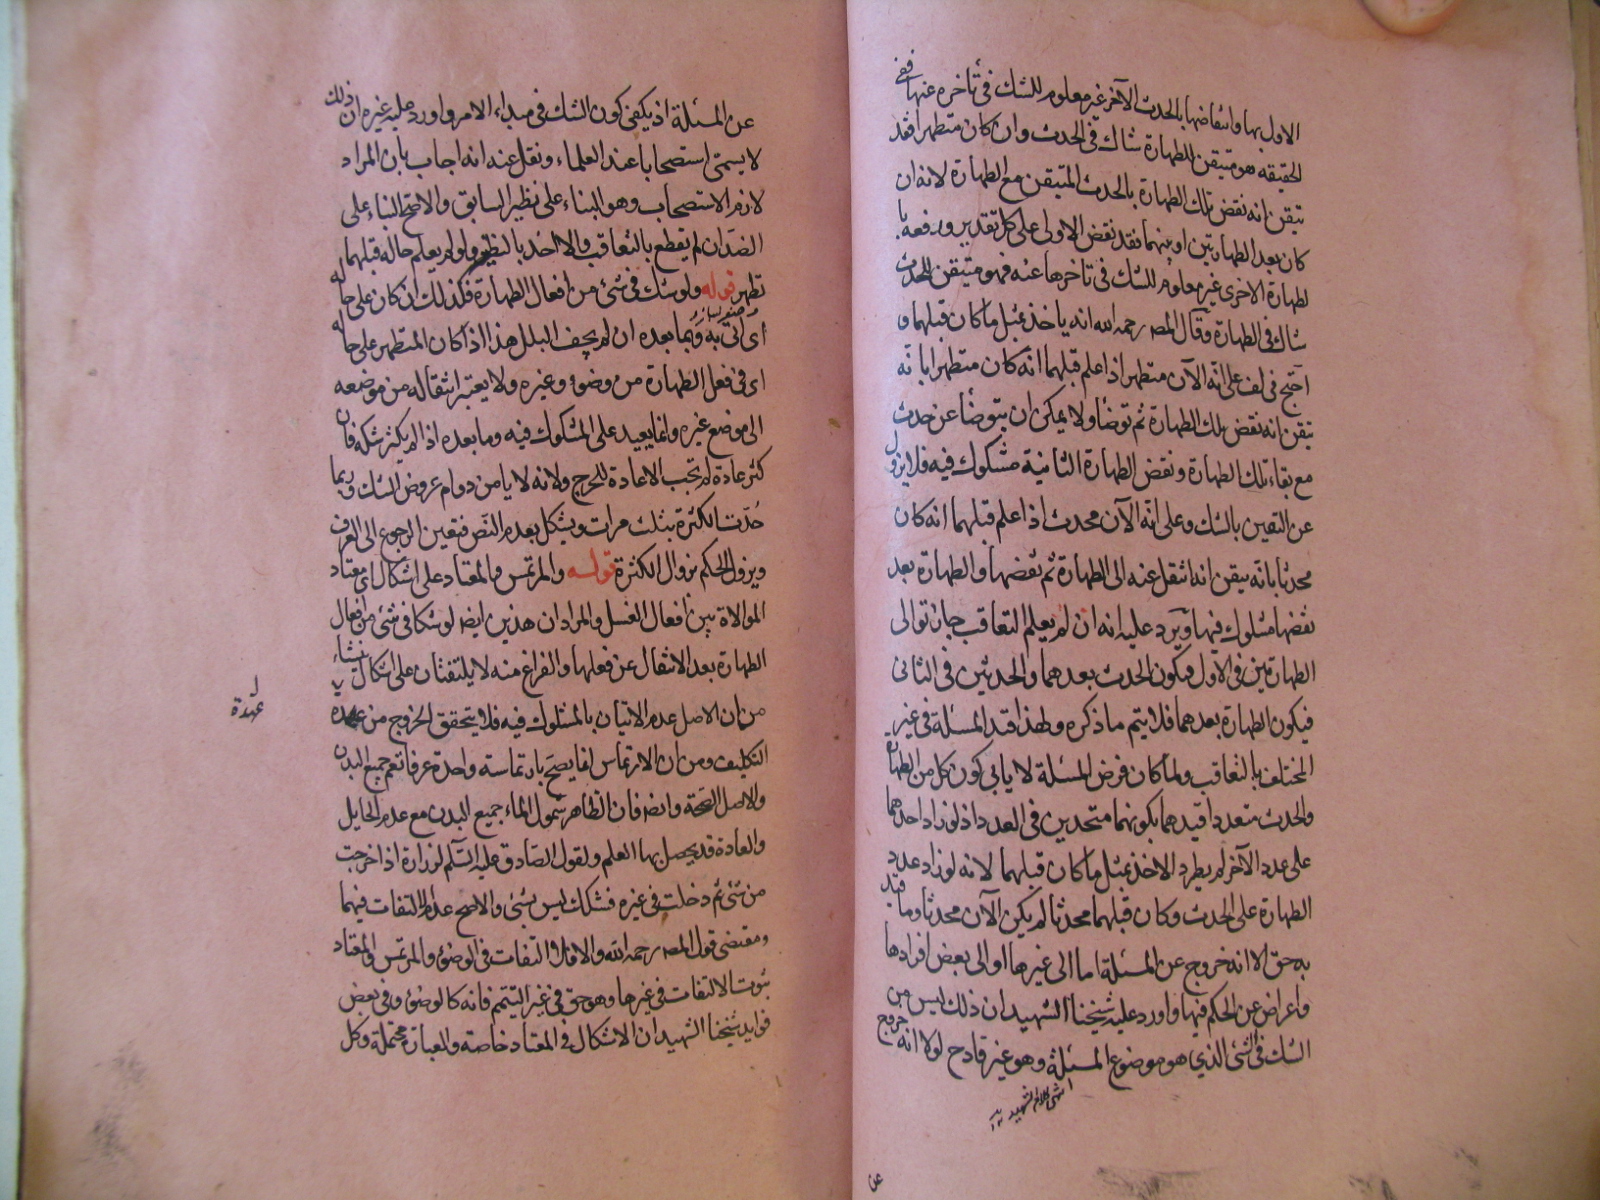 الاول بها وانتقاضها بالحدث الآخر غير معلوم للشك فى تاخره عنها ففى
الحقيقه هو متيقن للطهارة شاك فى الحدث وان كان متطهرا فقد
تيقن انه نقض تلك الطهارة بالحدث المتيقن مع الطهارة لانه ان
كان بعد الطهارتين او بينهما فقد نقض الاولى على كل تقدير ورفعه با
لطهارة الاخرى غير معلوم للشك فى تاخرها عنه فهو متيقن للحدث
شاك فى الطهارة وقال المصـ رحمه الله انه ياخذ بمثل ما كان قبلهما و
احتج فى لف على انّه الآن متطهر اذا علم قبلهما انه كان متطهرا بانّه
تيقن انه نقض تلك الطهارة ثم توضا ولا يمكن ان يتوضا عن حدث
مع بقاء تلك الطهارة ونقض الطهارة الثانية مشكوك فيه فلا يزول
عن اليقين بالشك وعلى انّه الآن محدث اذا علم قبلهما انه كان
محدثا بانّه تيقن انه انتقل عنه الى الطهارة ثم نقضها والطهارة بعد
نقضها مشكوك فيها ويرد عليه انه ان لم يعلم التعاقب جاز توالى
الطهارتين فى الاول فيكون الحدث بعدهما والحدثين فى الثانى
فيكون الطهارة بعدهما فلا يتم ما ذكره ولهذا قيد المسئلة فى غير
المختلف بالتعاقب ولما كان فرض المسئلة لا يابى كون كل من الطهارة
والحدث متعددا قيدهما بكونهما متحدين فى العدد اذ لو زاد احدهما
على عدد الآخر لم يطرد الاخذ بمثل ما كان قبلهما لانه لو زاد عدد
الطهارة على الحدث وكان قبلهما محدثا لم يكن الآن محدثا وما قيد
به حق الا انه خروج عن المسئلة اما الى غيرها او الى بعض افرادها
واعراض عن الحكم فيها واورد عليه شيخنا الشهيد ان ذلك ليس من
الشك فى الشئ الذي هو موضوع المسئلة وهو غير قادح لولا انه خروج
انتهى كلام الشهيد
عن
عن المسئلة اذ يكفى كون الشك فى مبداء الامر واورد عليه غيره ان ذلك
لا يسمّى استصحابا عند العلماء ونقل عنه انه اجاب بان المراد
لازم الاستصحاب وهو البناء على نظير السابق والاصح البناء على
الضدّ ان لم يقطع بالتعاقب والا اخذ بالنظير ولو لم يعلم حاله قبلهما
تطهر قوله ولو شك فى شئ من افعال الطهارة فكذلك ان كان على حاله
اى اتى به وبما بعده ان لم يجف البلل هذا اذا كان المتطهر على حاله
اى فى فعل الطهارة من وضوء وغيره ولا يعتبر انتقاله من موضعه
الى موضع غيره وانما يعيد على المشكوك فيه وما بعده اذا لم يكثر شكه فان
كثر عادة لم تجب الاعادة للحرج ولانه لا يامن دوام عروض الشك وربما
حُدّت الكثرة بثلث مرات ويشكل بعدم النّص فتعين الرجوع الى العرف
ويزول الحكم بزوال الكثرة قوله والمرتمس والمعتاد على اشكال اى معتاد
الموالاة بين افعال الغسل والمراد ان هذين ايضا لو شكا فى شئ من افعال
الطهارة بعد الانتقال عن فعلها والفراغ منه لا يلتفتان على اشكال ينشاء
من ان الاصل عدم الاتيان بالمشكوك فيه فلا يتحقق الخروج من عهدة
عهدة
التكليف ومن ان الارتماس انما يصحّ بارتماسة واحدة عرفا تعم جميع البدن
والاصل الصّحة وايضا فان الظاهر شمول الماء جميع البدن مع عدم الحايل
والعادة قد يحصل بها العلم ولقول الصّادق عليه السّلم لزرارة اذا خرجت
من شئ ثم دخلت فى غيره فشكك ليس بشئ والاصح عدم الالتفات فيهما
ومقتضى قول المصـ رحمه الله والا فلا التفات فى الوضوء والمرتمس والمعتاد
ثبوت الالتفات فى غيرها وهو حق فى غير التيمّم فانه كالوضوء وفى بعض
فوايد شيخنا الشهيد ان الاشكال فى المعتاد خاصة والعبارة محتملة وكل